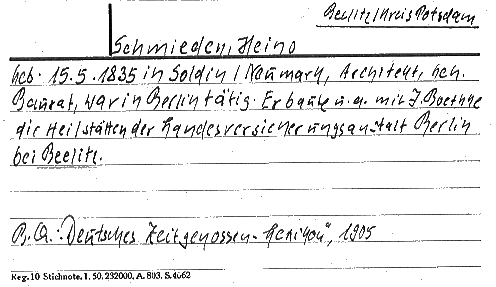 Beelitz/Kreis Potsdam
Schmieden, Heino
geb. 15.5.1835 in Soldin/Neumark, Architekt, Geh.
Baurat, war in Berlin tätig. Erbaute u.a. mit J. Boethke
die Heilstätten der Landesversicherungsanstalt Berlin
bei Beelitz.
B.Q.: "Deutsches Zeitgenossen-Lexikon", 1905
Reg. 10 Stichnote. 1. 50. 232000. A. 803. S. 4062